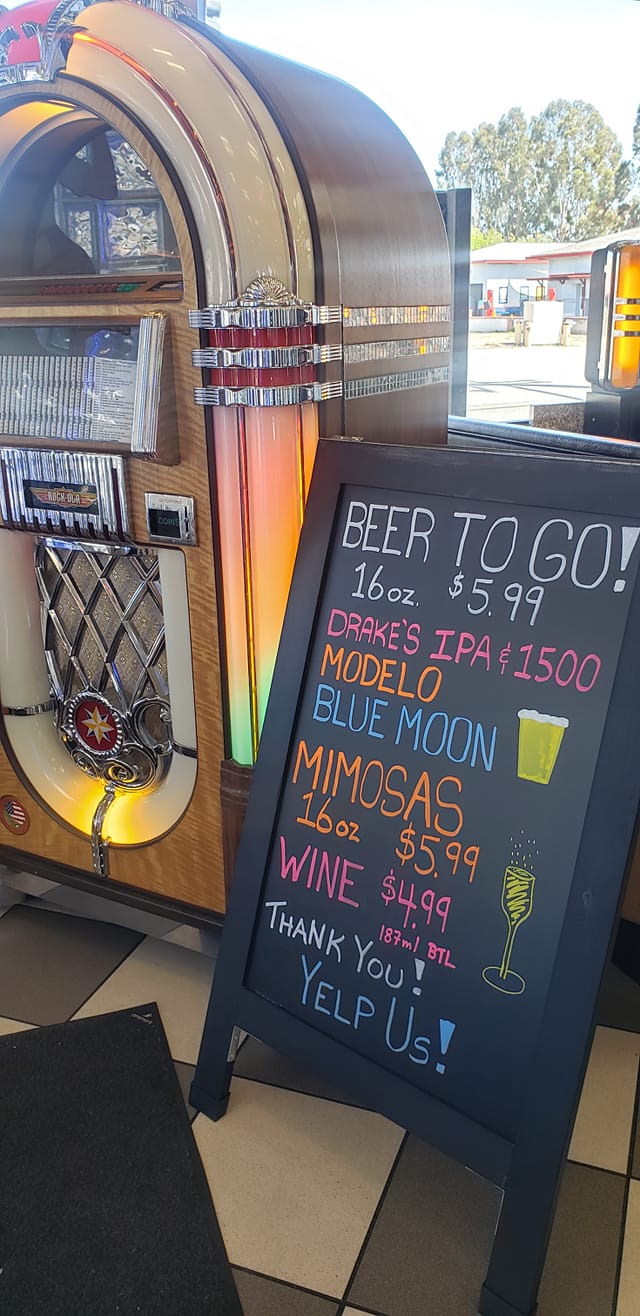 ROCK-OLA
COINS
BEER TO GO!
16oz. $5.99
DRAKE'S IPA & 1500
MODELO
BLUE MOON
MIMOSAS
16oz $5.99
WINE $4.99
187ml BTL
THANK YOU!
YELP US!